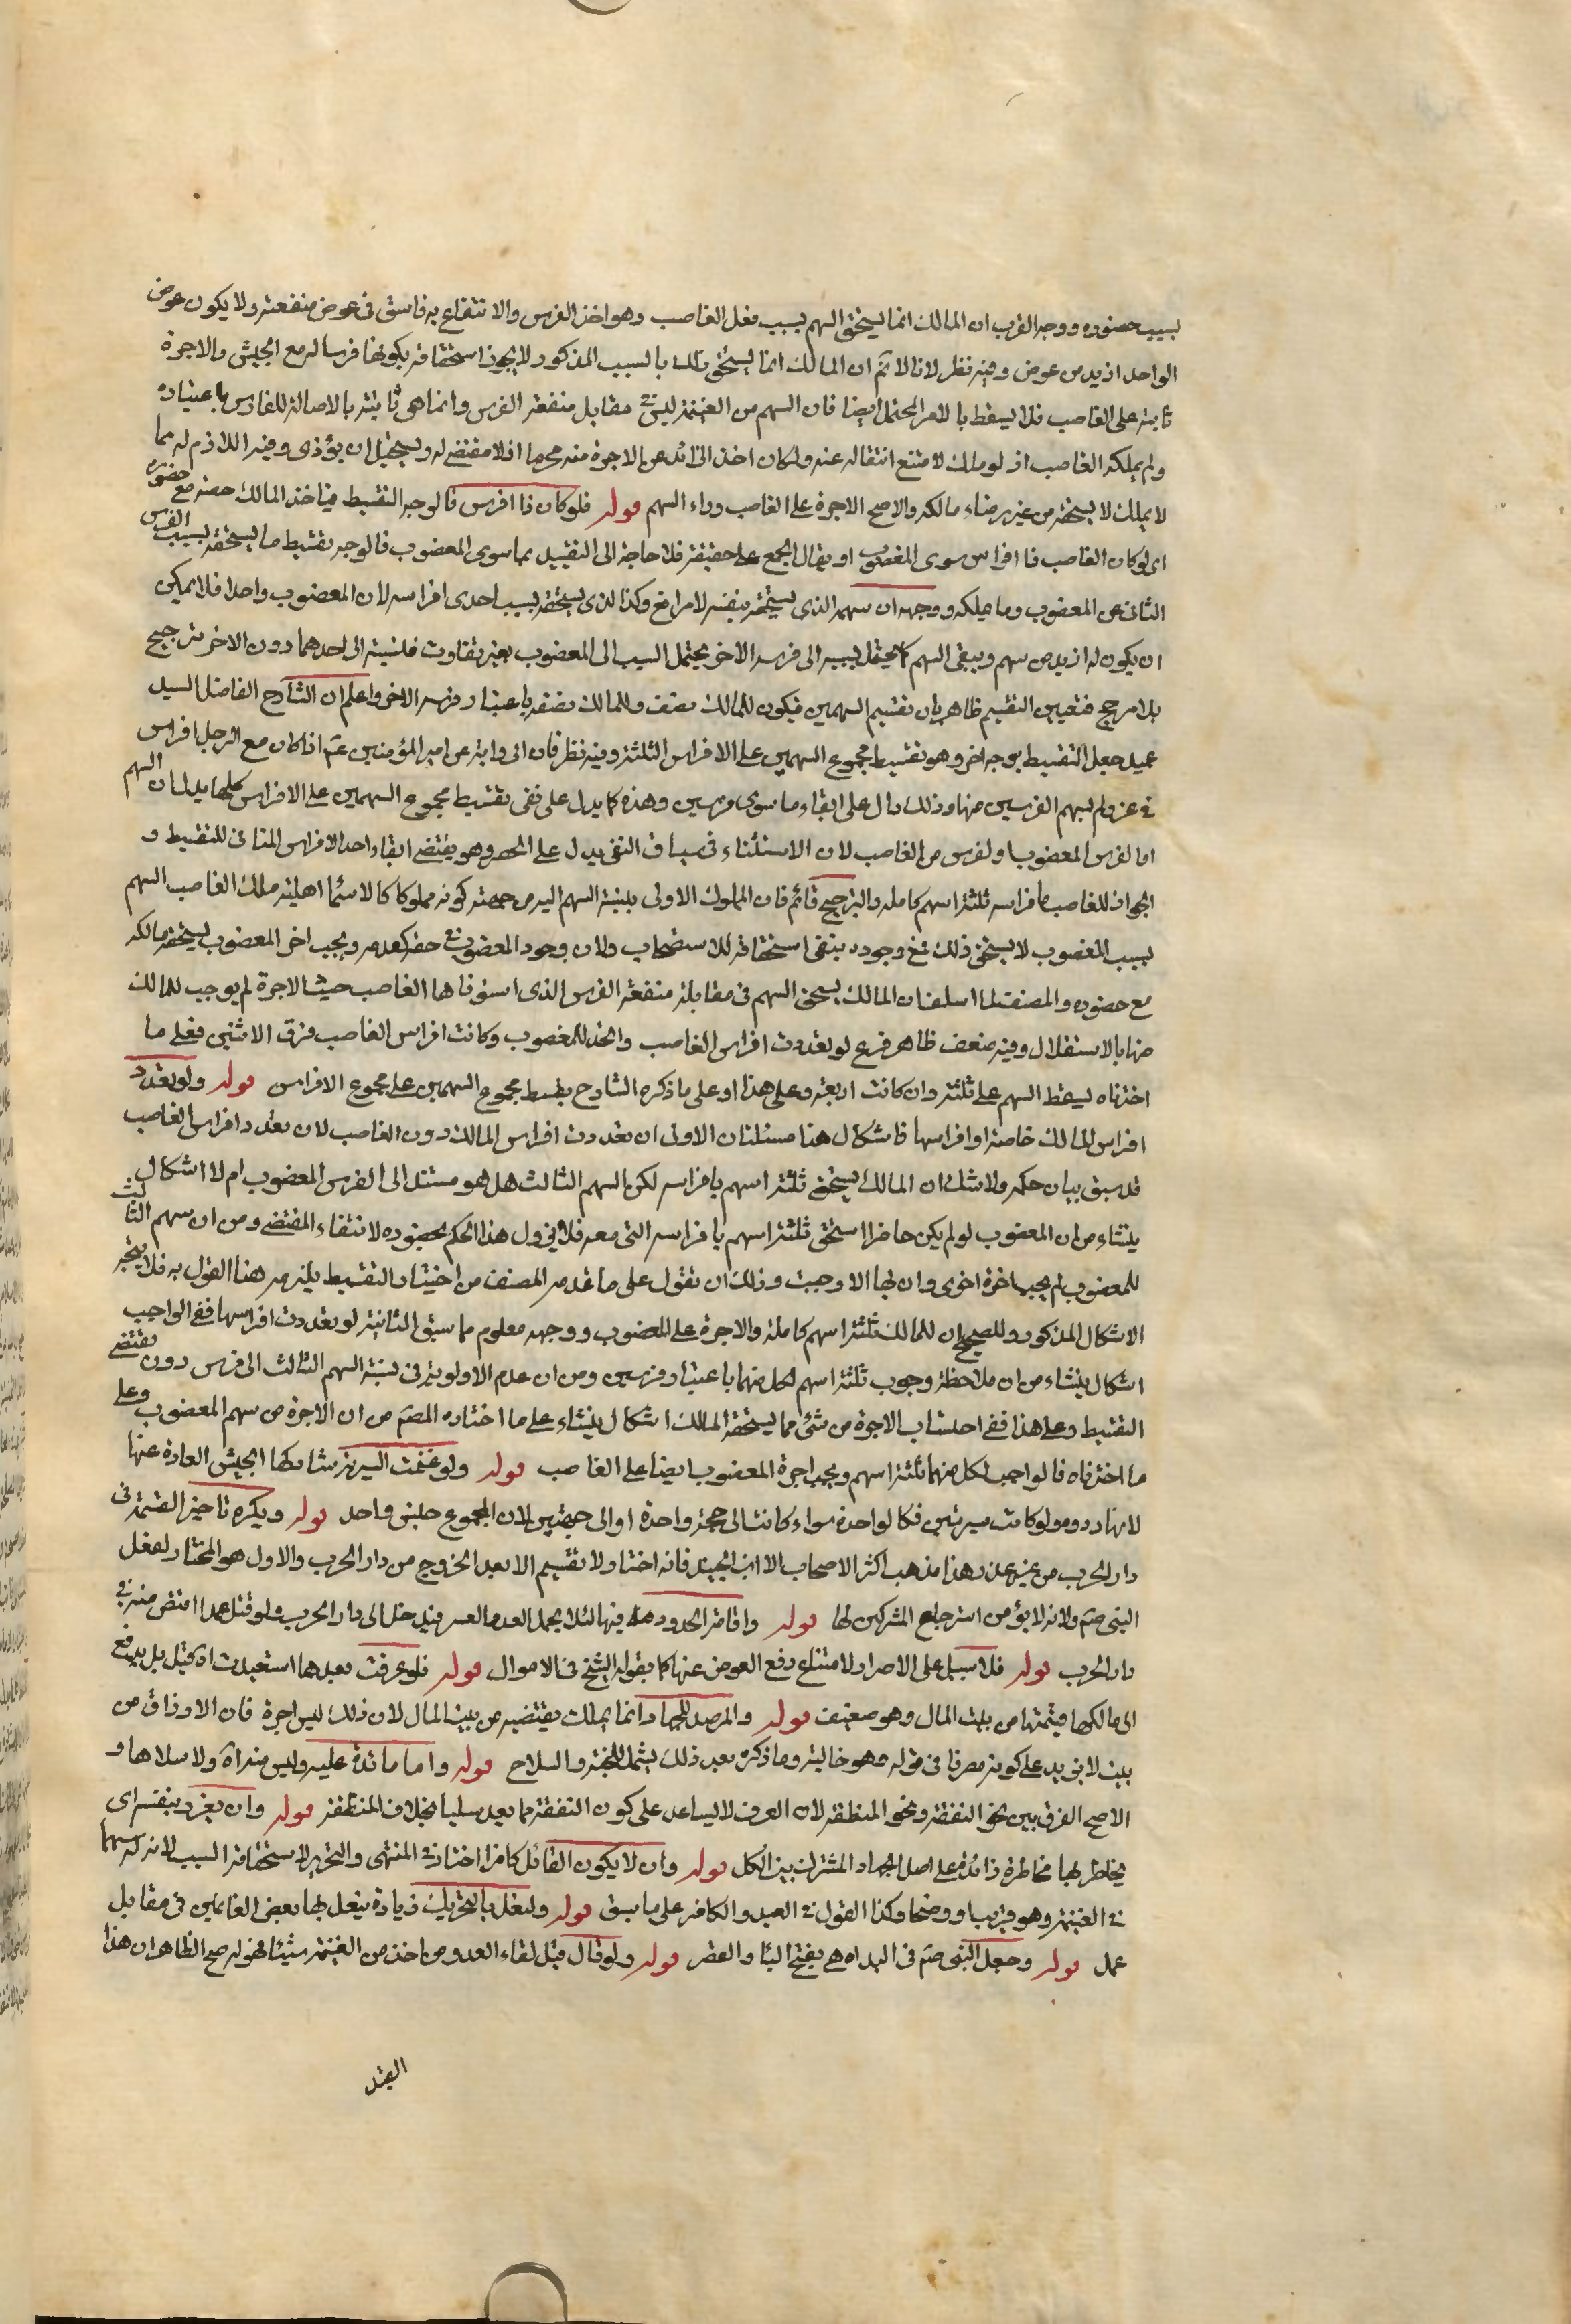 بسبب حضوره ووجه القرب ان المالك انما يستحق السهم بسبب فعل الغاصب وهو اخذ الفرس والانتفاع به فاستوفى عوض منفعته ولا يكون عوض
الواحد ازيد من عوض وفيه نظر لانا لا نم ان المالك انما يستحق ذلك بالسبب المذكور لا يجوز استحقاقه بكونها فرسا له مع الجيش والاجرة
ثابتة على الغاصب فلا يسقط بالامر المحتمل ايضا فان السهم من الغنيمة ليس في مقابل منفعة الفرس وانما هي ثابتة بالاصالة للفارس باعتباره
ولم يملكه الغاصب اذ لو ملك لامتنع انتقاله عنه ولكان اخذ الزائد عن الاجرة منه محرما اذ لا مقتضى له ويحتمل ان يؤدى وفيه اللازم له مما
لا يملك لا يستحقه من غير رضاء مالكه والاصح الاجرة على الغاصب وراء السهم قوله فلو كان ذا افرس فالوجه التقسيط فياخذ المالك حصته مع حضوره
اى لو كان الغاصب ذا افراس سوى المغصوب او يقال الجمع على حقيقته فلا حاجة الى التقييد بما سوى المغصوب فالوجه تقسيط ما يستحقه بسبب الفرس
الثانى على المغصوب وما يملكه ووجهه ان سهمه الذى يستحقه بنفسه لا مراغ وكذا الذى يستحقه بسبب احدى افراسه لان المغصوب واحد فلا يمكن
ان يكون له ازيد من سهم ويبقى السهم كما يحتمل نسبته الى فرسه الاخر يحتمل النسب الى المغصوب بغير تفاوت فلنسبته الى احدهما دون الاخر ترجيح
بلا مرجح فتعين التقسيم ظاهر بان تقسيم السهمين فيكون للمالك نصف وللمالك نصفه باعتبار فرسه الاخر واعلم ان الشارح الفاضل السيد
عميد جعل التقسيط بوجه اخر وهو تقسيط مجموع السهمين على الافراس الثلثة وفيه نظر فان الرواية عن امير المؤمنين عم اذا كان مع الرجل افراس
فى غزو لم يسهم الفرسين منها وذلك دال على ابقاء ما سوى فرسين وهذه كما يدل على نفى تقسيط مجموع السهمين على الافراس كلها يدل ان السهم
اما لفرس المغصوب او لفرس من الغاصب لان الاستثناء فى سياق النفى يدل على الحصر وهو يقتضى ابقاء واحد الافراس المنافى للتقسيط و
الجواب للغاصب بافراسه ثلثة اسهم كاملة والترجيح قائم فان المملوك الاولى بنسبة السهم اليه من جهة كونه مملوكا كالاسيما اهلية ملك الغاصب السهم
بسبب المغصوب لا يستحق ذلك فمع وجوده ينفى استحقاقه للاستصحاب ولان وجود المغصوب فى حقه كعدمه ويجب اخر المغصوب يستحقه مالكه
مع حضوره والمصنف لما اسلف ان المالك يستحق السهم فى مقابلة منفعة الفرس الذى استوفاها الغاصب حيث الاجرة لم يوجب للمالك
منها بالاستقلال وفيه ضعف ظاهر فرع لو تعددت افراس الغاصب واتحد المغصوب وكانت افراس الغاصب فوق الاثنين فعلى ما
اخترناه يسقط السهم على ثلثة وان كانت اربعة وعلى هذا او على ما ذكره الشارح يقسط مجموع السهمين على مجموع الافراس قوله ولو تعدد
افراس المالك خاصة او افراسها فاشكال هنا مسئلتان الاولى ان تعددت افراس المالك دون الغاصب لان تعدد افراس الغاصب
قد سبق بيان حكمه ولا شك ان المالك يستحق ثلثة اسهم بافراسه لكن السهم الثالث هل هو مستند الى الفرس المغصوب ام لا اشكال
ينشاء من ان المغصوب لو لم يكن حاضرا استحق ثلثة اسهم بافراسه التى معه فلا يزول هذا الحكم بحضوره لانتفاء المقتضى ومن ان سهم الثالث
للمغصوب لم يجب اجرة اخرى وان لها الا وجبت وذلك ان نقول على ما قدمه المصنف من اختيار التقسيط يلزمه هنا القول به فلا يتجه
الاشكال المذكور والصحيح ان للمالك ثلثة اسهم كاملة والاجرة على المغصوب ووجهه معلوم مما سبق الثانية لو تعددت افراسها ففى الواجب
اشكال ينشاء من ان ملاحظة وجوب ثلثة اسهم لكل منهما باعتبار فرسين ومن ان عدم الاولوية فى نسبة السهم الثالث الى فرس دون تقتضى
التقسيط وعلى هذا ففى احتساب الاجرة من شئ مما يستحقه المالك اشكال ينشاء على ما اختاره المصنف من ان الاجرة من سهم المغصوب وعلى
ما اخترناه فالواجب لكل منهما ثلثة اسهم ويجب اجرة المغصوب ايضا على الغاصب قوله ولو غنمت السرية شاركها الجيش الصادرة عنها
لانها ردؤه ولو كانت سريتين فكالواحدة سواء كانتا الى جهة واحدة او الى جهتين لان المجموع جيش واحد قوله ويكره تاخير القسمة فى
دار الحرب من غير عذر هذا مذهب اكثر الاصحاب الا ابن الجنيد فانه اختار ولا تقسيم الا بعد الخروج من دار الحرب والاول هو المختار لفعل
النبى صم ولانه لا يؤمن استرجاع المشركين لها قوله واقامة الحدود فيها لئلا يحمل العدو العسر فيدخل الى دار الحرب ولو قتل عمدا اقتص منه فى
دار الحرب قوله فلا سبيل على الاصرار لامتناع دفع العوض عنها كما يقوله الشيخ فى الاموال قوله فلو عرفت بعدهما استعيدت اه قيل بل يدفع
الى مالكها قيمتها من بيت المال وهو ضعيف قوله والمرصد للجهاد انما يملك بقبضه من بيت المال لان ذلك ليس اجرة فان الارزاق من
بيت لا يزيد على كونه مصرفا فى قوله وهو خالية وما ذكره بعد ذلك يشمل الجنة والسلاح قوله واما ما تدة عليه وليس منه راة ولا سلاها و
الاصح الفرق بين نحو النفقة ونحو المنطقة لان العرف لا يساعد على كون النفقة مما يعد سلبا بخلاف المنطقة قوله وان يغرر بنفسه اى
يخاطر بها مخاطرة زائدة على اصل الجهاد المشترك بين الكل قوله وان لا يكون القاتل كافرا اختار فى المنتهى والتحرير لاستحقاقه السلب لانه له سهما
فى الغنيمة وهو قريبا ووضحا وكذا القول فى العبد والكافر على ما سبق قوله والنفل بالتحريك زيادة ينفل لها بعض الغانمين فى مقابل
عمل قوله وجعل النبى صم فى البداه هى بفتح الباء والقصر قوله ولو قال قبل لقاء العدو من اخذ من الغنيمة شيئا فهو له صح الظاهر ان هذا
القيد